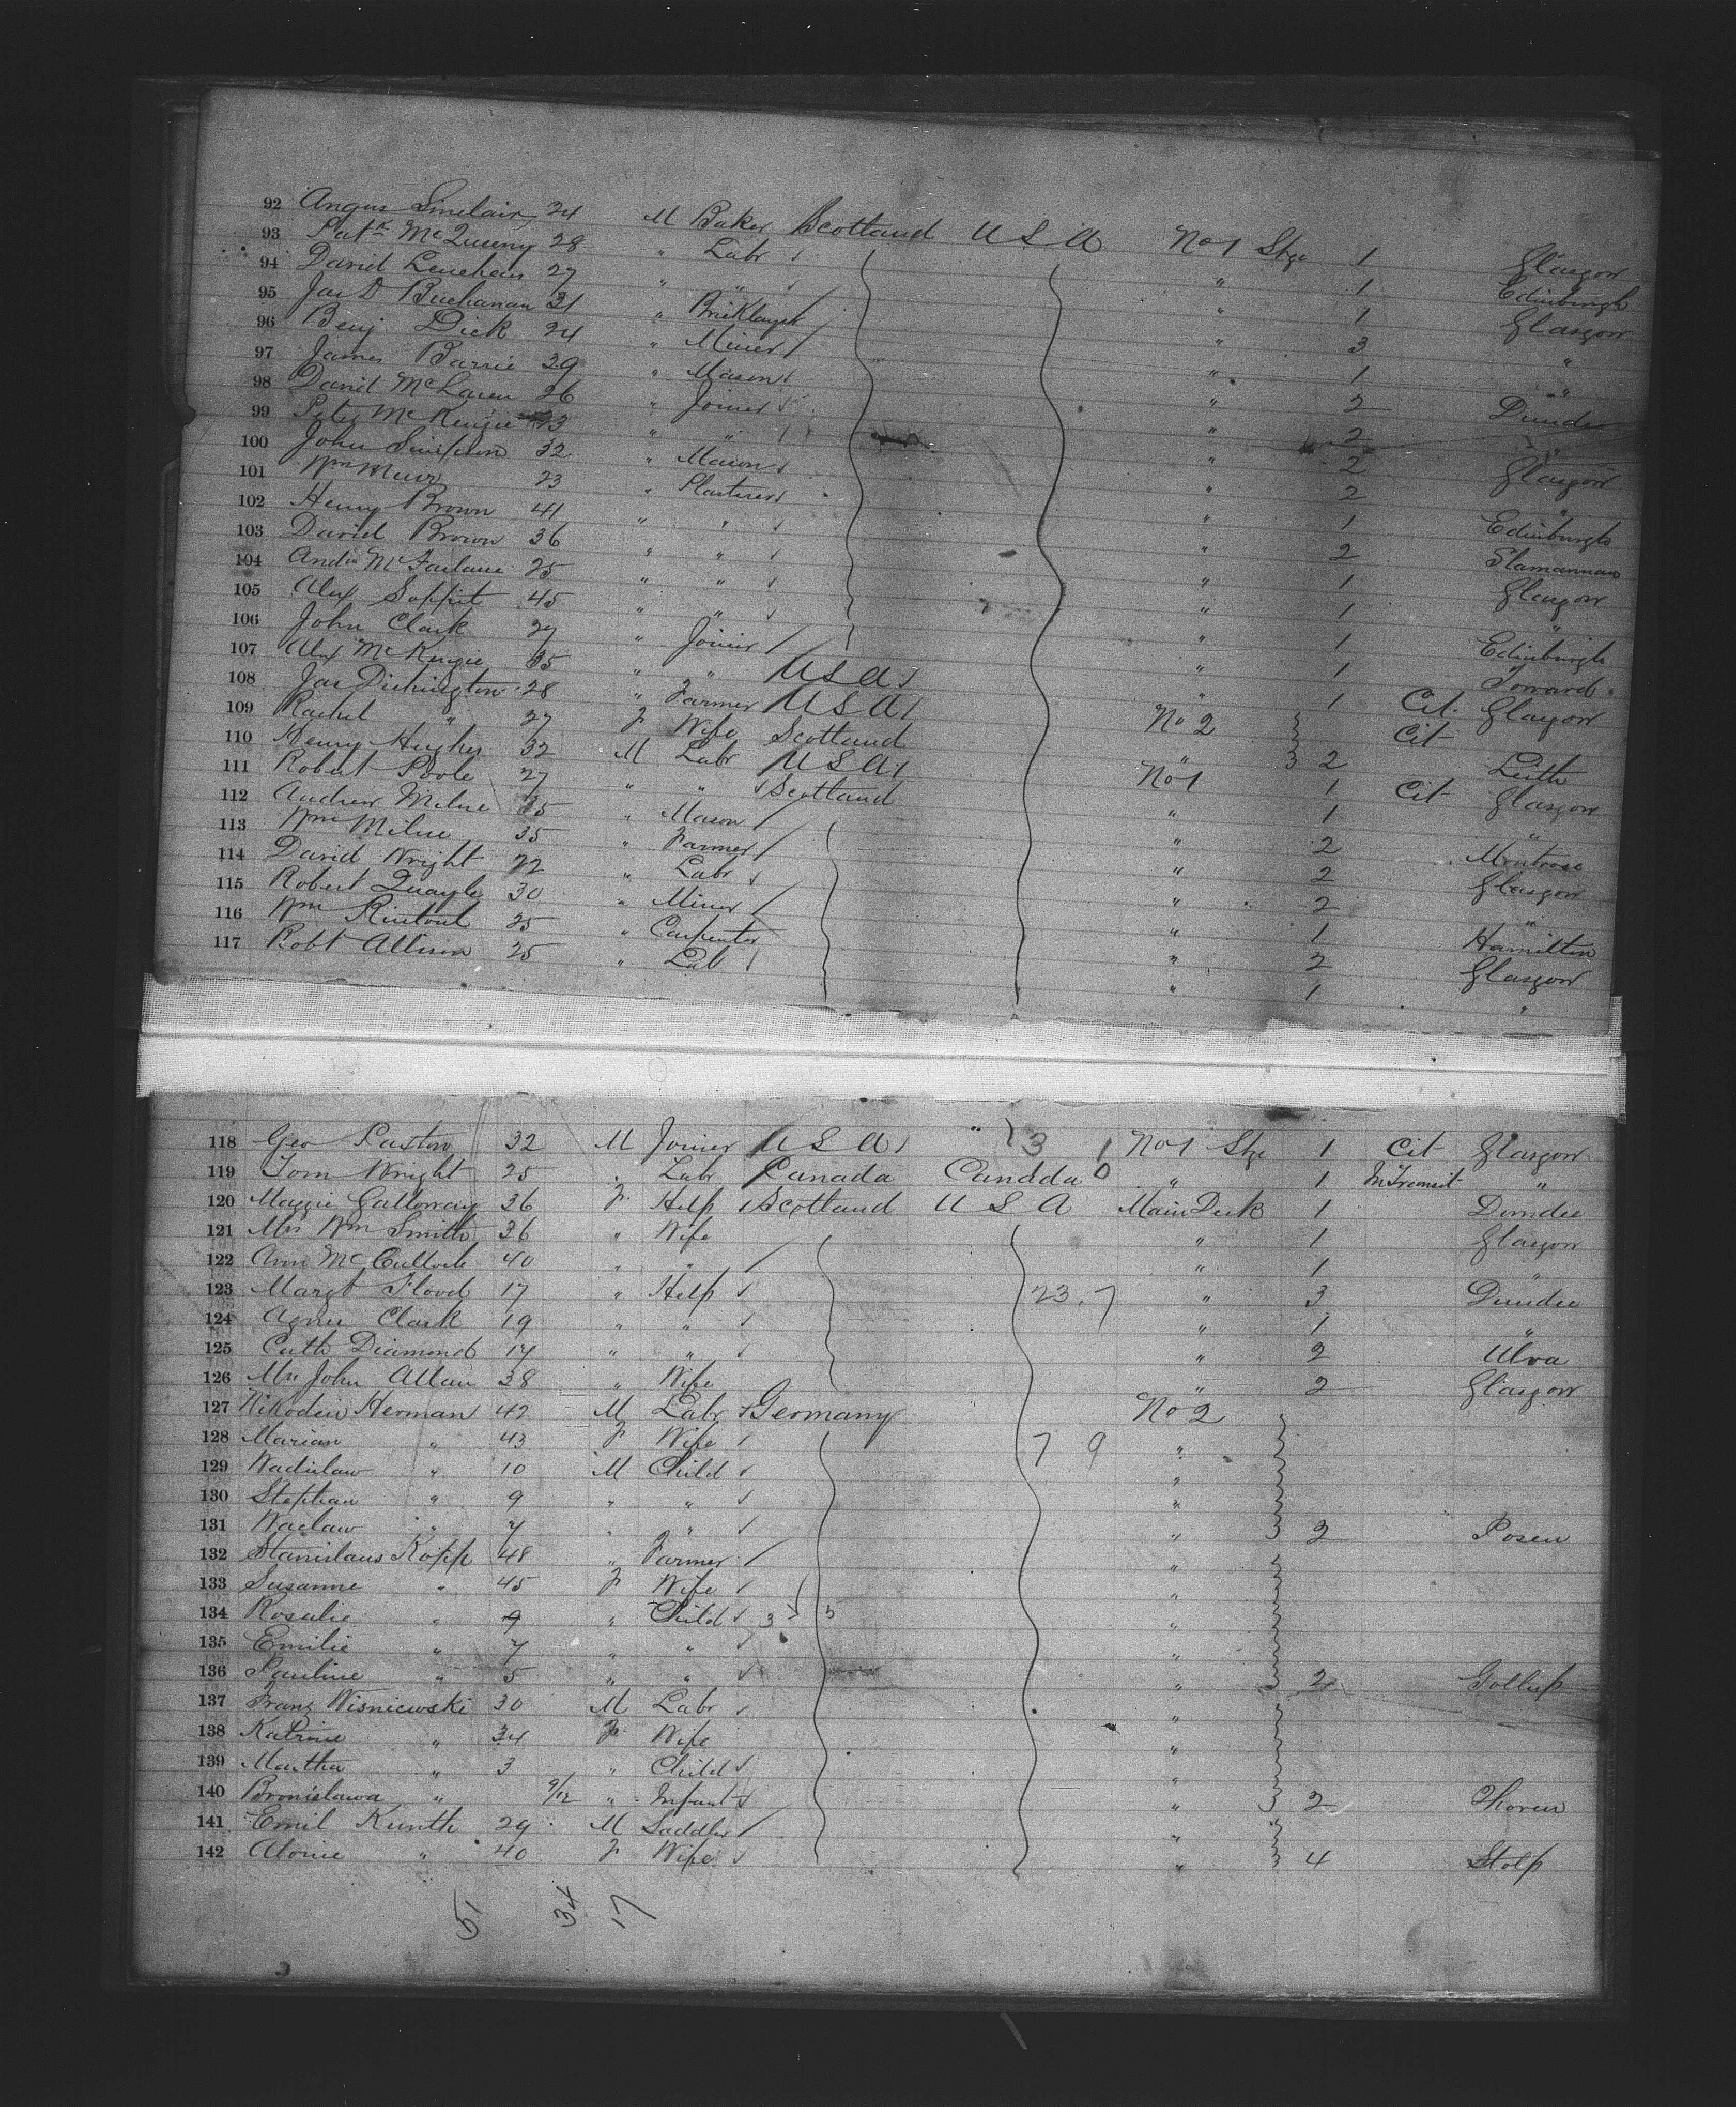 92 Angus Sinclair 24 M Baker Scotland U S A No 1 Stge 1 Glasgow
93 Patk McQueeny 28 " Labr " 1 Edinburgh
94 David Leuchars 27 " " " 1 Glasgow
95 Jas D Buchanan 31 " Bricklayer " 3 "
96 Benj Dick 24 " Miner " 1 "
97 James Barrie 29 " Mason " 2 Dundee
98 David McLaren 26 " Joiner " 2 "
99 Peter McKenzie 23 " " " 2 Glasgow
100 John Simpson 32 " Mason " 2 "
101 Wm Muir 23 " Plasterer " 1 Edinburgh
102 Henry Brown 41 " " " 2 Slamannan
103 David Brown 36 " " " 1 Glasgow
104 Andw McFarlane 25 " " " 1 "
105 Alex Soppit 45 " " " 1 Edinburgh
106 John Clark 27 " Joiner " 1 Toward
107 Alex McKenzie 35 " " U S A " 1 Cit. Glasgow
108 Jas Dickington 28 " Farmer U S A No 2 Cit
109 Rachel " 27 F Wife Scotland " 2 Leith
110 Henry Hughes 32 M Labr U S A No 1 1 Cit Glasgow
111 Robert Poole 27 " " Scotland " 1 "
112 Andrew Milne 25 " Mason " 2 Montrose
113 Wm Milne 35 " Farmer " 2 Glasgow
114 David Wright 22 " Labr " 2 "
115 Robert Quayle 30 " Miner " 1 Hamilton
116 Wm Rintoul 25 " Carpenter " 2 Glasgow
117 Robt Allison 25 " Lab " 1 "
118 Geo Paxton 32 M Joiner U S A " 3 1 No 1 Stge 1 Cit Glasgow
119 Tom Wright 25 " Labr Canada Canada 0 " 1 In Transit "
120 Maggie Galloway 36 F Help Scotland U S A Main Deck 1 Dundee
121 Mrs Wm Smith 36 " Wife " 1 Glasgow
122 Ann McCulloch 40 " " " 1 "
123 Margt Flood 17 " Help 23. 7 " 3 Dundee
124 Agnes Clark 19 " " " 1 "
125 Cath Diamond 17 " " " 2 Alva
126 Mrs John Allan 38 " Wife " 2 Glasgow
127 Nikodein Herman 42 M Labr Germany No 2
128 Marian " 43 F Wife 7 9 "
129 Wadislaw " 10 M Child "
130 Stephan " 9 " " "
131 Waclaw " 7 " " " 2 Posen
132 Stanislaus Kopp 48 " Farmer "
133 Susanne " 45 F Wife "
134 Rosalie " 9 " Child 3 5 "
135 Emilie " 7 " " "
136 Pauline " 5 " " " 2 Gollup
137 Franz Wisniewski 30 M Labr "
138 Katrine " 34 F Wife "
139 Martha " 3 " Child "
140 Bronislawa " 9/12 " Infant " 2 Thorun
141 Emil Kunth 29 M Saddler "
142 Alonie " 40 F Wife " 4 Stolp
51 34 17